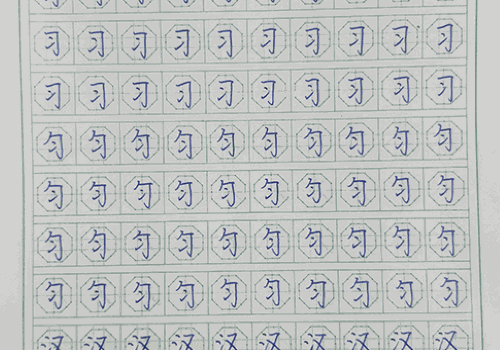 习习习习习习习习习习
习习习习习习习习习习
匀匀匀匀匀匀匀匀匀匀
匀匀匀匀匀匀匀匀匀匀
匀匀匀匀匀匀匀匀匀匀
匀匀匀匀匀匀匀匀匀匀
汉汉汉汉汉汉汉汉汉汉